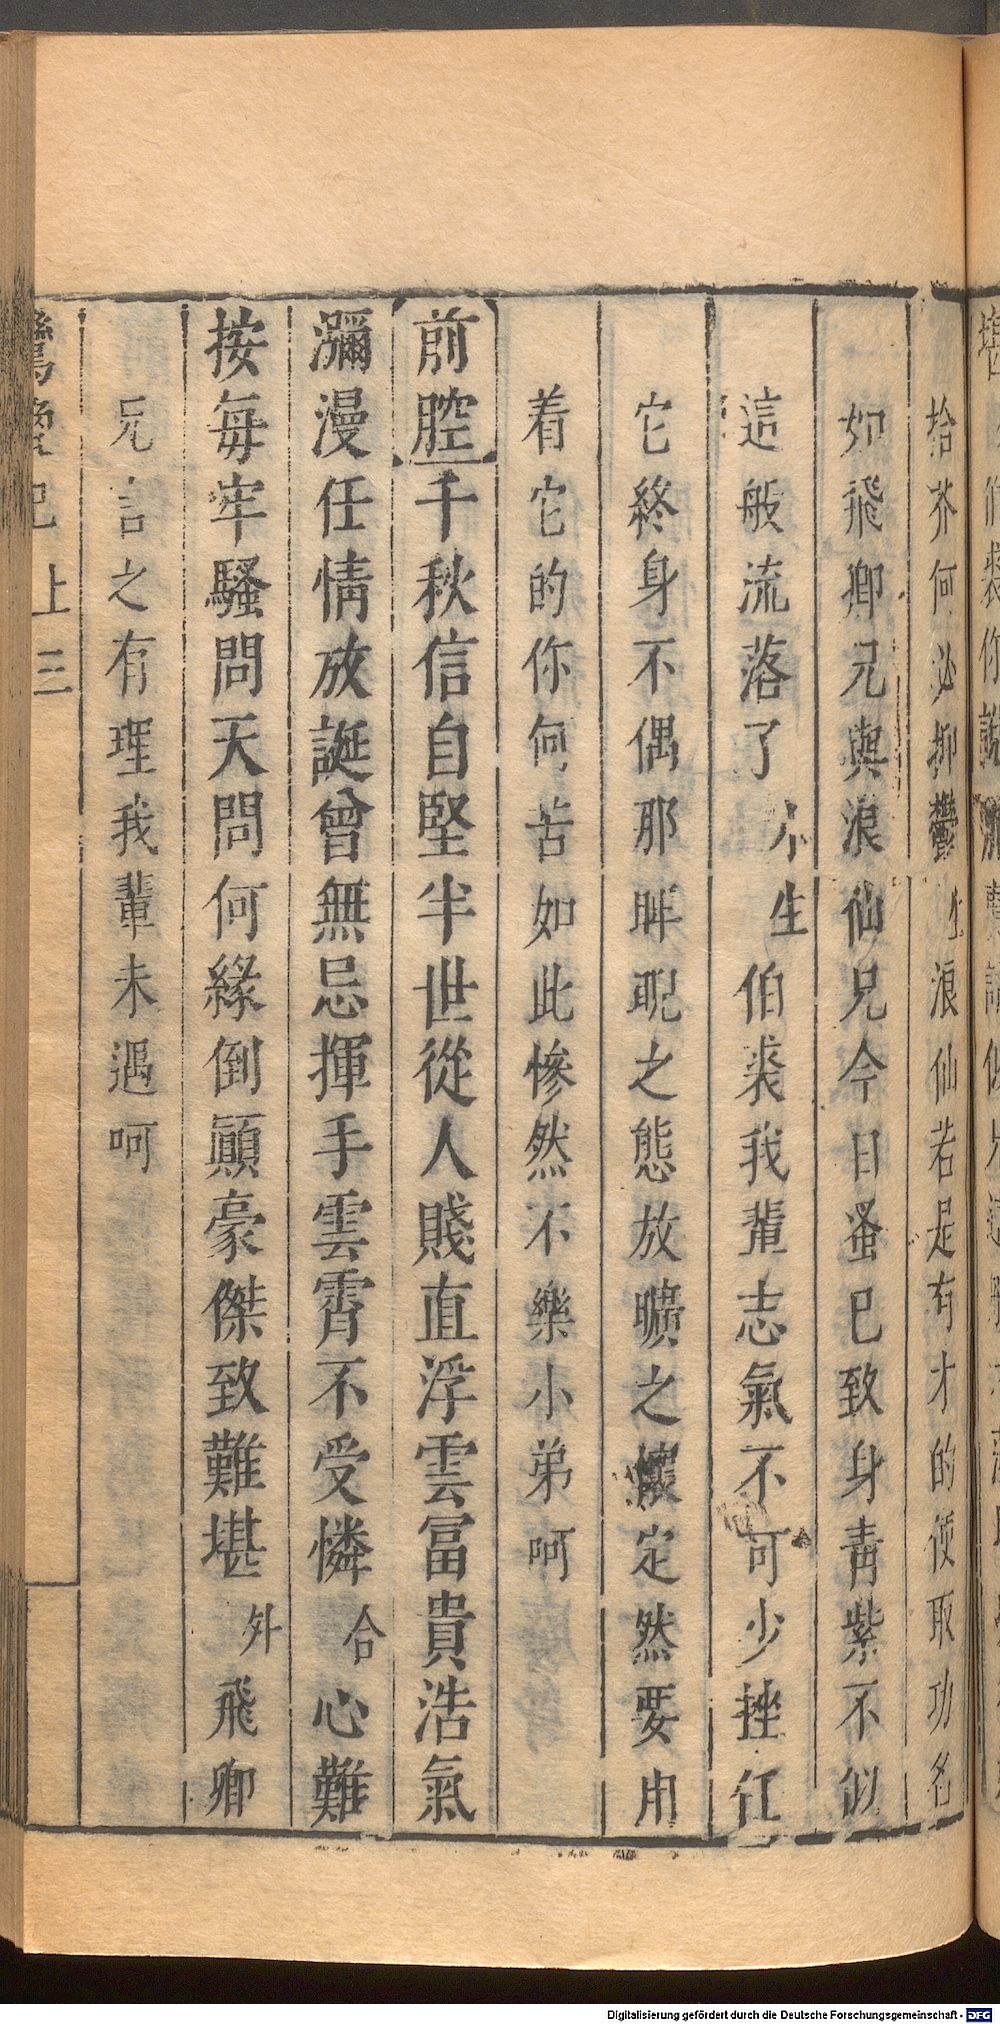 拾芥何必抑鬱生浪仙若是有才的便取功名
如飛卿兄與浪仙兄今日蚤已致身青紫不似
這般流落了小生伯裘我輩志氣不可少挫任
它終身不偶那睥睨之態放曠之懷定然要用
着它的你何苦如此慘然不樂小弟呵
前腔千秋信自堅半世從人賤直浮雲冨貴浩氣
瀰漫任情放誕曾無忌揮手雲霄不受憐合心難
按每牢騷問天問何緣倒顚豪傑致難堪外飛卿
兄言之有理我輩未遇呵
上 三
Digitalisierung gefördert durch die Deutsche Forschungsgemeinschaft - DFG